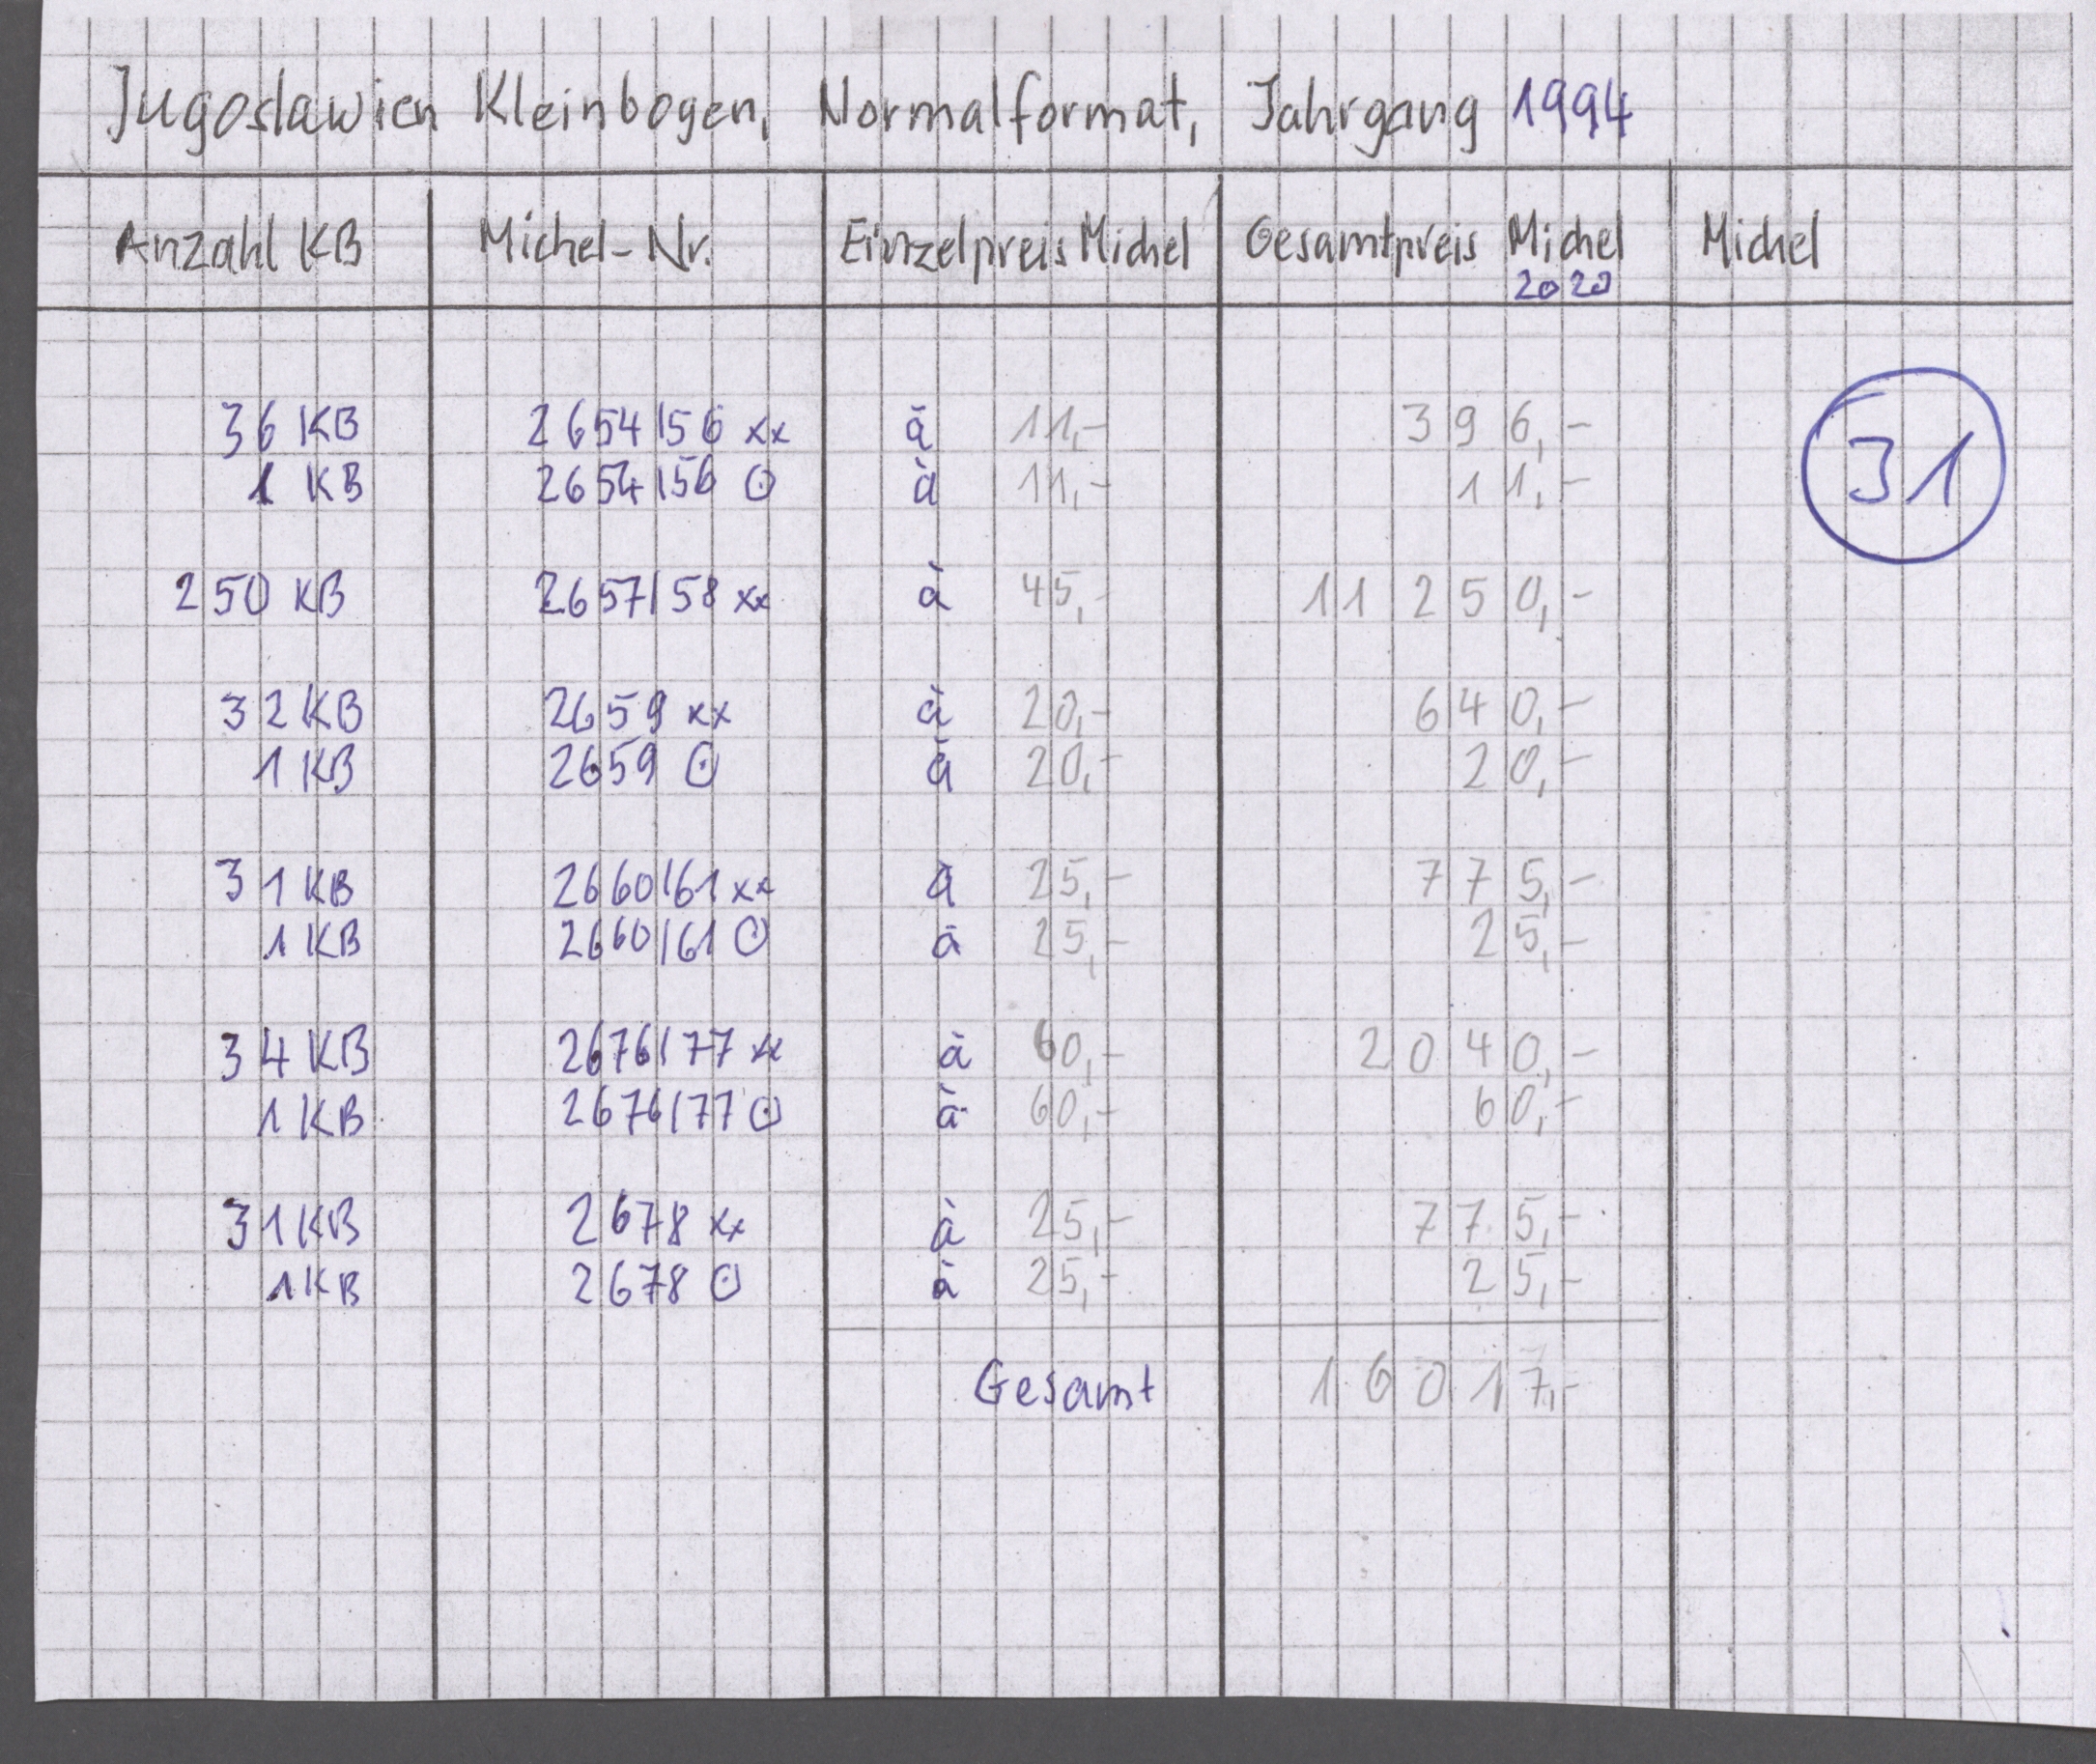 Jugoslawien Kleinbogen, Normalformat, Jahrgang 1994
Anzahl KB Michel-Nr. Einzelpreis Michel Gesamtpreis Michel 2020 Michel
36 KB 2654/56 xx à 11,- 396,-
1 KB 2654/56 ⊙ à 11,- 11,-
31
250 KB 2657/58 xx à 45,- 11 250,-
32 KB 2659 xx à 20,- 640,-
1 KB 2659 ⊙ à 20,- 20,-
31 KB 2660/61 xx à 25,- 775,-
1 KB 2660/61 ⊙ à 25,- 25,-
34 KB 2676/77 xx à 60,- 2040,-
1 KB 2676/77 ⊙ à 60,- 60,-
31 KB 2678 xx à 25,- 775,-
1 KB 2678 ⊙ à 25,- 25,-
Gesamt 16017,-